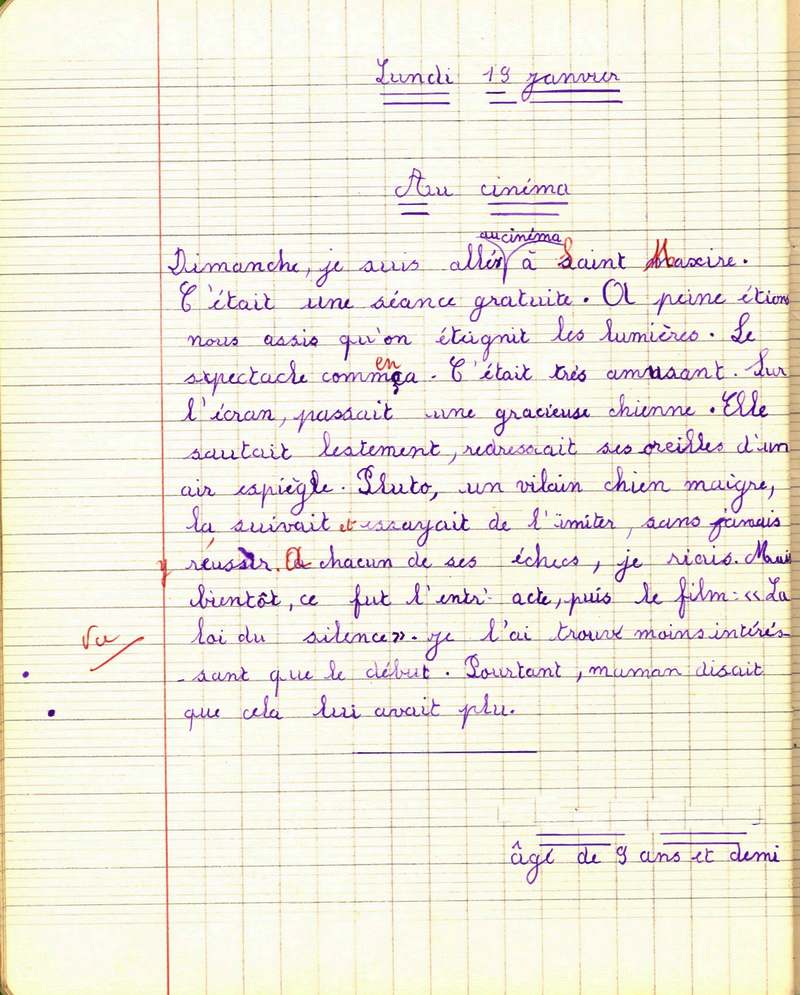 Lundi 19 janvier
Au cinéma
au cinéma
Dimanche, je suis allé à Saint Maxire.
C'était une séance gratuite. A peine étions
nous assis qu'on éteignit les lumières. Le
spectacle commença. C'était très amusant. Sur
l'écran, passait une gracieuse chienne. Elle
sautait lestement, redressait ses oreilles d'un
air espiègle. Pluto, un vilain chien maigre,
la suivait et essayait de l'imiter, sans jamais
y réussir. A chacun de ses échecs, je riais. Mais
bientôt, ce fut l'entr'acte, puis le film : «La
loi du silence». Je l'ai trouvé moins intéres-
Vu
-sant que le début. Pourtant, maman disait
que cela lui avait plu.
âgé de 9 ans et demi